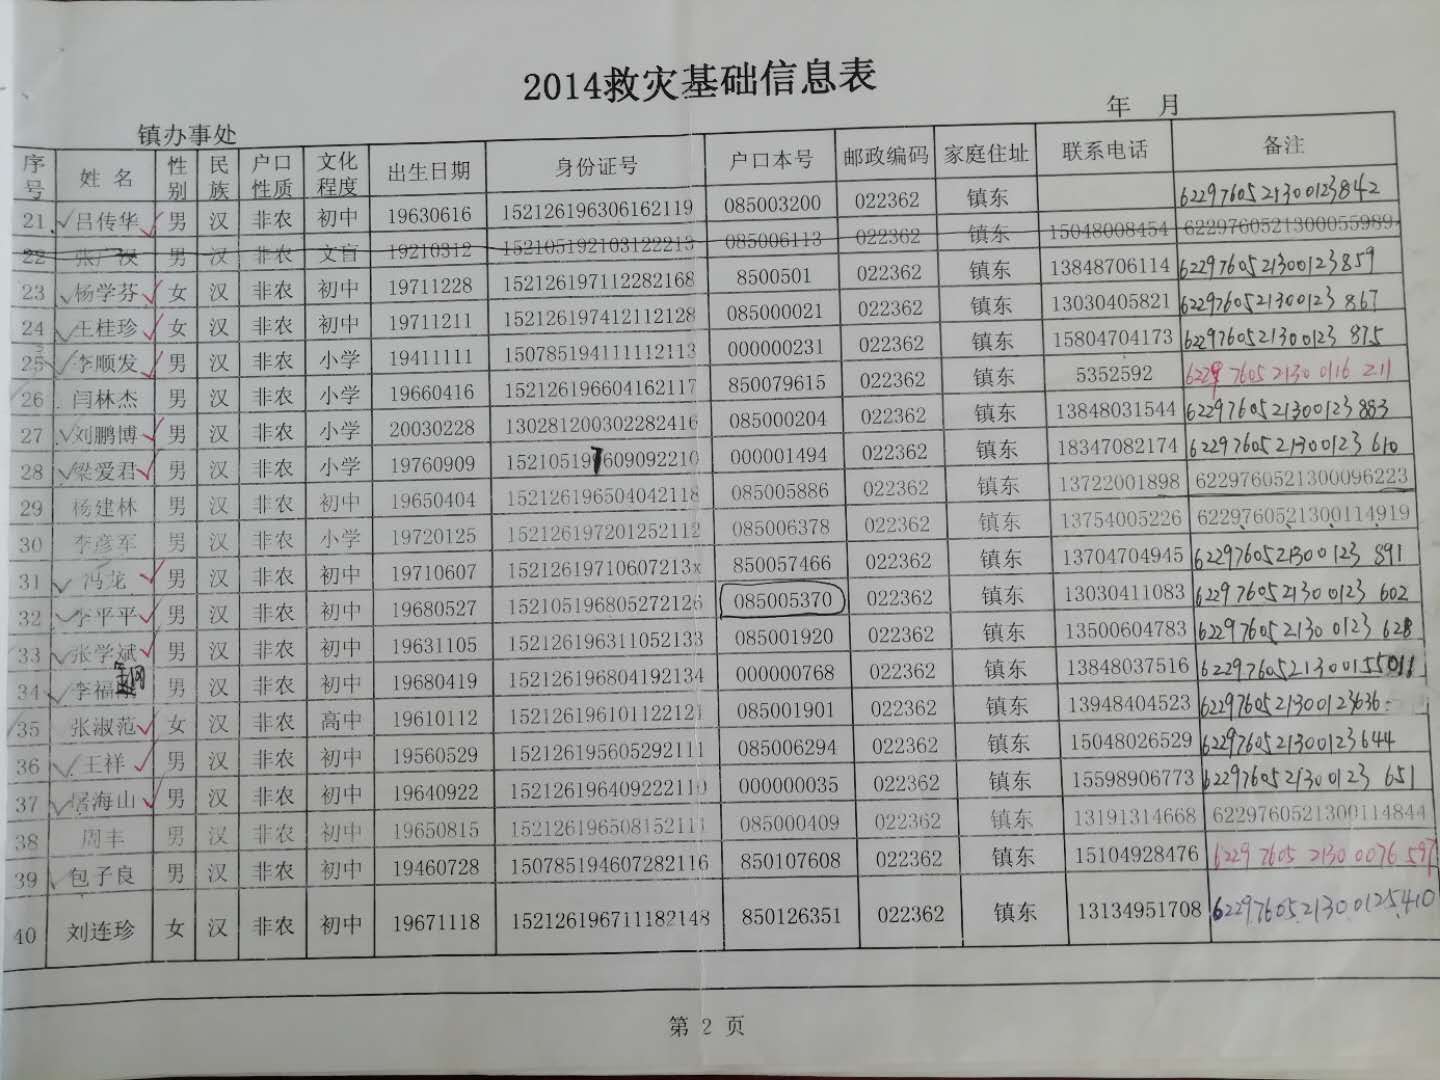 2014救灾基础信息表
镇办事处 年 月
序号 姓名 性别 民族 户口性质 文化程度 出生日期 身份证号 户口本号 邮政编码 家庭住址 联系电话 备注
21 吕传华 男 汉 非农 初中 19630616 152126196306162119 085003200 022362 镇东 6229760521300123842
22 张广汉 男 汉 非农 文盲 19210312 152105192103122213 085006113 022362 镇东 15048008454 6229760521300055989
23 杨学芬 女 汉 非农 初中 19711228 152126197112282168 8500501 022362 镇东 13848706114 6229760521300123859
24 王桂珍 女 汉 非农 初中 19711211 152126197412112128 085000021 022362 镇东 13030405821 6229760521300123867
25 李顺发 男 汉 非农 小学 19411111 150785194111112113 000000231 022362 镇东 15804704173 6229760521300123875
26 闫林杰 男 汉 非农 小学 19660416 152126196604162117 850079615 022362 镇东 5352592 6229760521300116211
27 刘鹏博 男 汉 非农 小学 20030228 130281200302282416 085000204 022362 镇东 13848031544 6229760521300123883
28 梁爱君 男 汉 非农 小学 19760909 152105197609092210 000001494 022362 镇东 18347082174 6229760521300123610
29 杨建林 男 汉 非农 初中 19650404 152126196504042118 085005886 022362 镇东 13722001898 6229760521300096223
30 李彦军 男 汉 非农 小学 19720125 152126197201252112 085006378 022362 镇东 13754005226 6229760521300114919
31 冯龙 男 汉 非农 初中 19710607 15212619710607213x 850057466 022362 镇东 13704704945 6229760521300123891
32 李平平 男 汉 非农 初中 19680527 152105196805272126 085005370 022362 镇东 13030411083 6229760521300123602
33 张学斌 男 汉 非农 初中 19631105 152126196311052133 085001920 022362 镇东 13500604783 6229760521300123628
34 李福 男 汉 非农 初中 19680419 152126196804192134 000000768 022362 镇东 13848037516 6229760521300155011
35 张淑范 女 汉 非农 高中 19610112 152126196101122121 085001901 022362 镇东 13948404523 6229760521300123636
36 王祥 男 汉 非农 初中 19560529 152126195605292111 085006294 022362 镇东 15048026529 6229760521300123644
37 海山 男 汉 非农 初中 19640922 152126196409222110 000000035 022362 镇东 15598906773 6229760521300123651
38 周丰 男 汉 非农 初中 19650815 152126196508152111 085000409 022362 镇东 13191314668 6229760521300114844
39 包子良 男 汉 非农 初中 19460728 150785194607282116 850107608 022362 镇东 15104928476 6229760521300076597
40 刘连珍 女 汉 非农 初中 19671118 152126196711182148 850126351 022362 镇东 13134951708 6229760521300125410
第 2 页